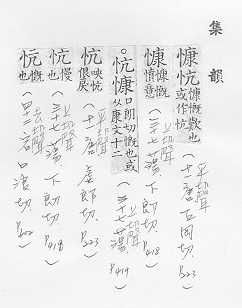 集韻
慷忼慷慨歎也或作忼
平聲
(十一唐 丘岡切 P.223)
慷慷慨憤意
上聲
(三十七蕩 下朗切 P.418)
○忼慷口朗切慨也或从康文十二
上聲
(三十七蕩 P.419)
忼咉忼恨戾
平聲
(十一唐 虛郎切 P.223)
忼慢也
上聲
(三十七蕩 下朗切 P.418)
忼慨也
去聲
口浪切